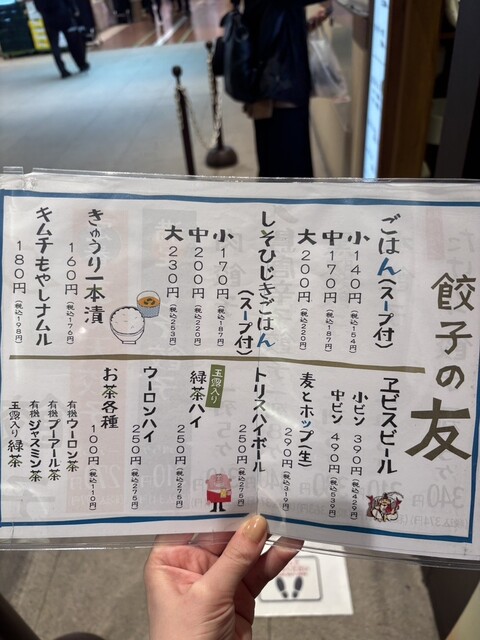 餃子の友
ごはん(スープ付)
小 140円(税込154円)
中 170円(税込187円)
大 200円(税込220円)
しそひじきごはん(スープ付)
小 170円(税込187円)
中 200円(税込220円)
大 230円(税込253円)
きゅうり一本漬
160円(税込176円)
キムチもやしナムル
180円(税込198円)
ヱビスビール
小ビン 390円(税込429円)
中ビン 490円(税込539円)
麦とホップ(生)
290円(税込319円)
トリスハイボール
250円(税込275円)
玉露入り
緑茶ハイ
250円(税込275円)
ウーロンハイ
250円(税込275円)
お茶各種
100円(税込110円)
有機ウーロン茶
有機プーアール茶
有機ジャスミン茶
玉露入り緑茶